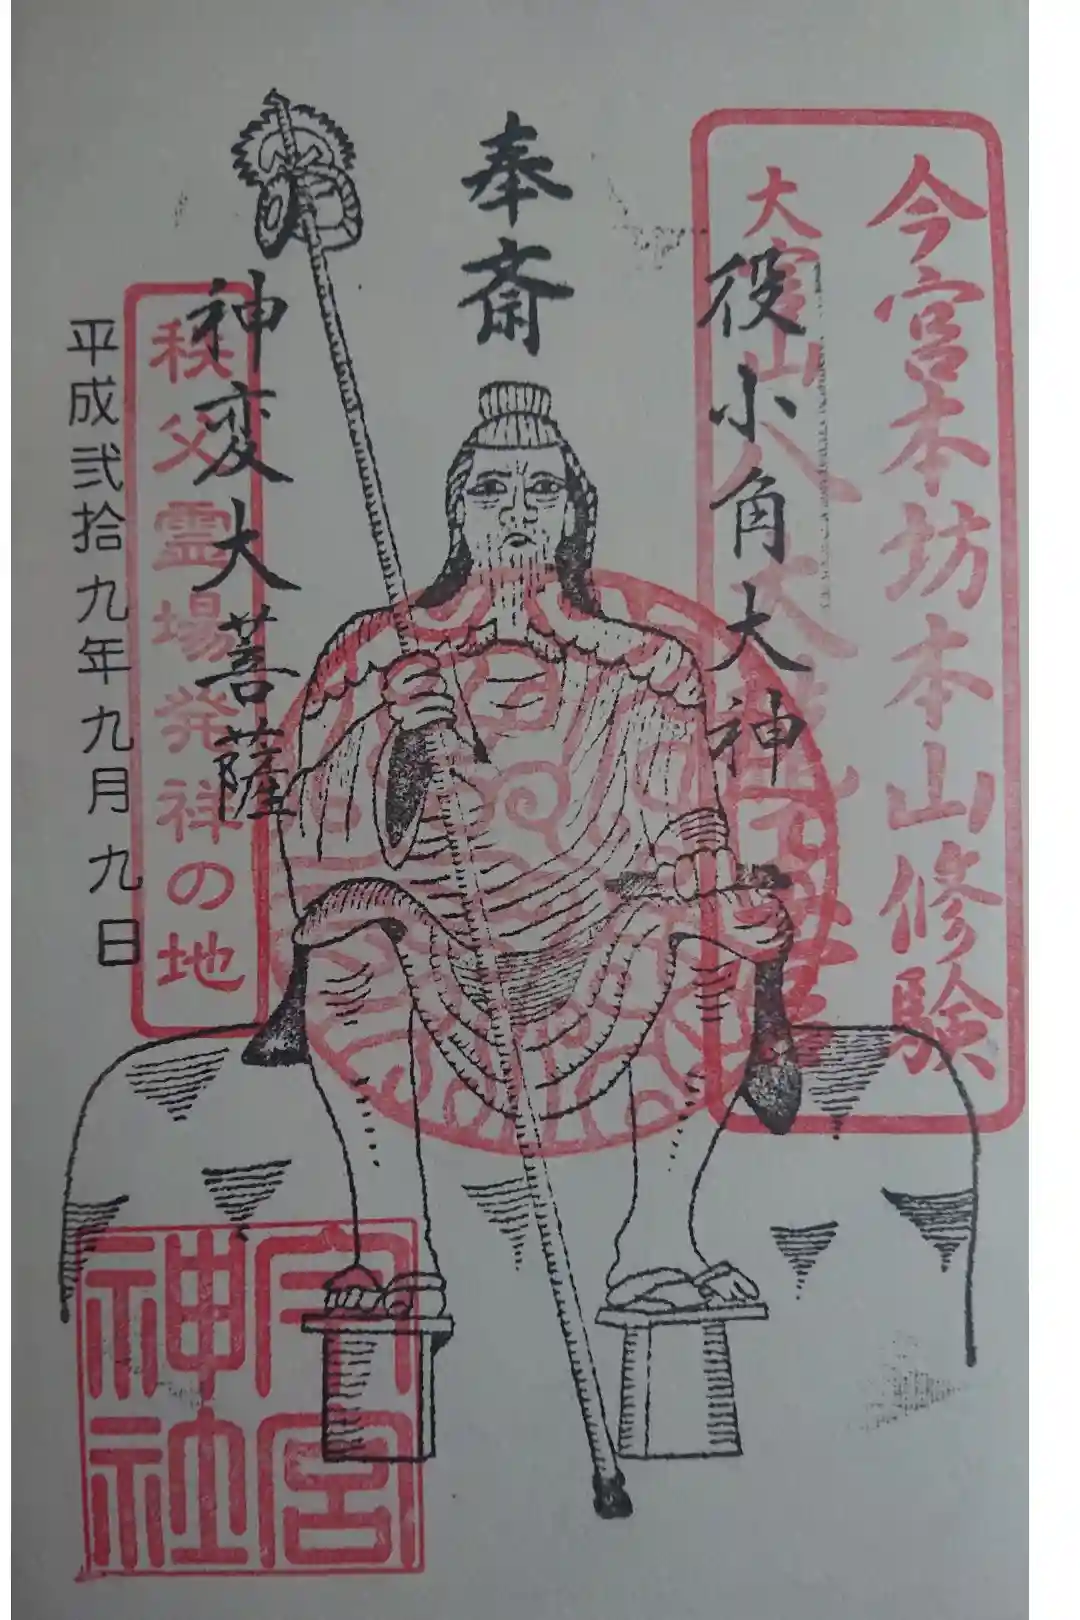 今宮本坊本山修験
大宮山八大龍王宮
役小角大神
奉斎
神変大菩薩
秩父霊場発祥の地
平成弐拾九年九月九日
今宮
神社